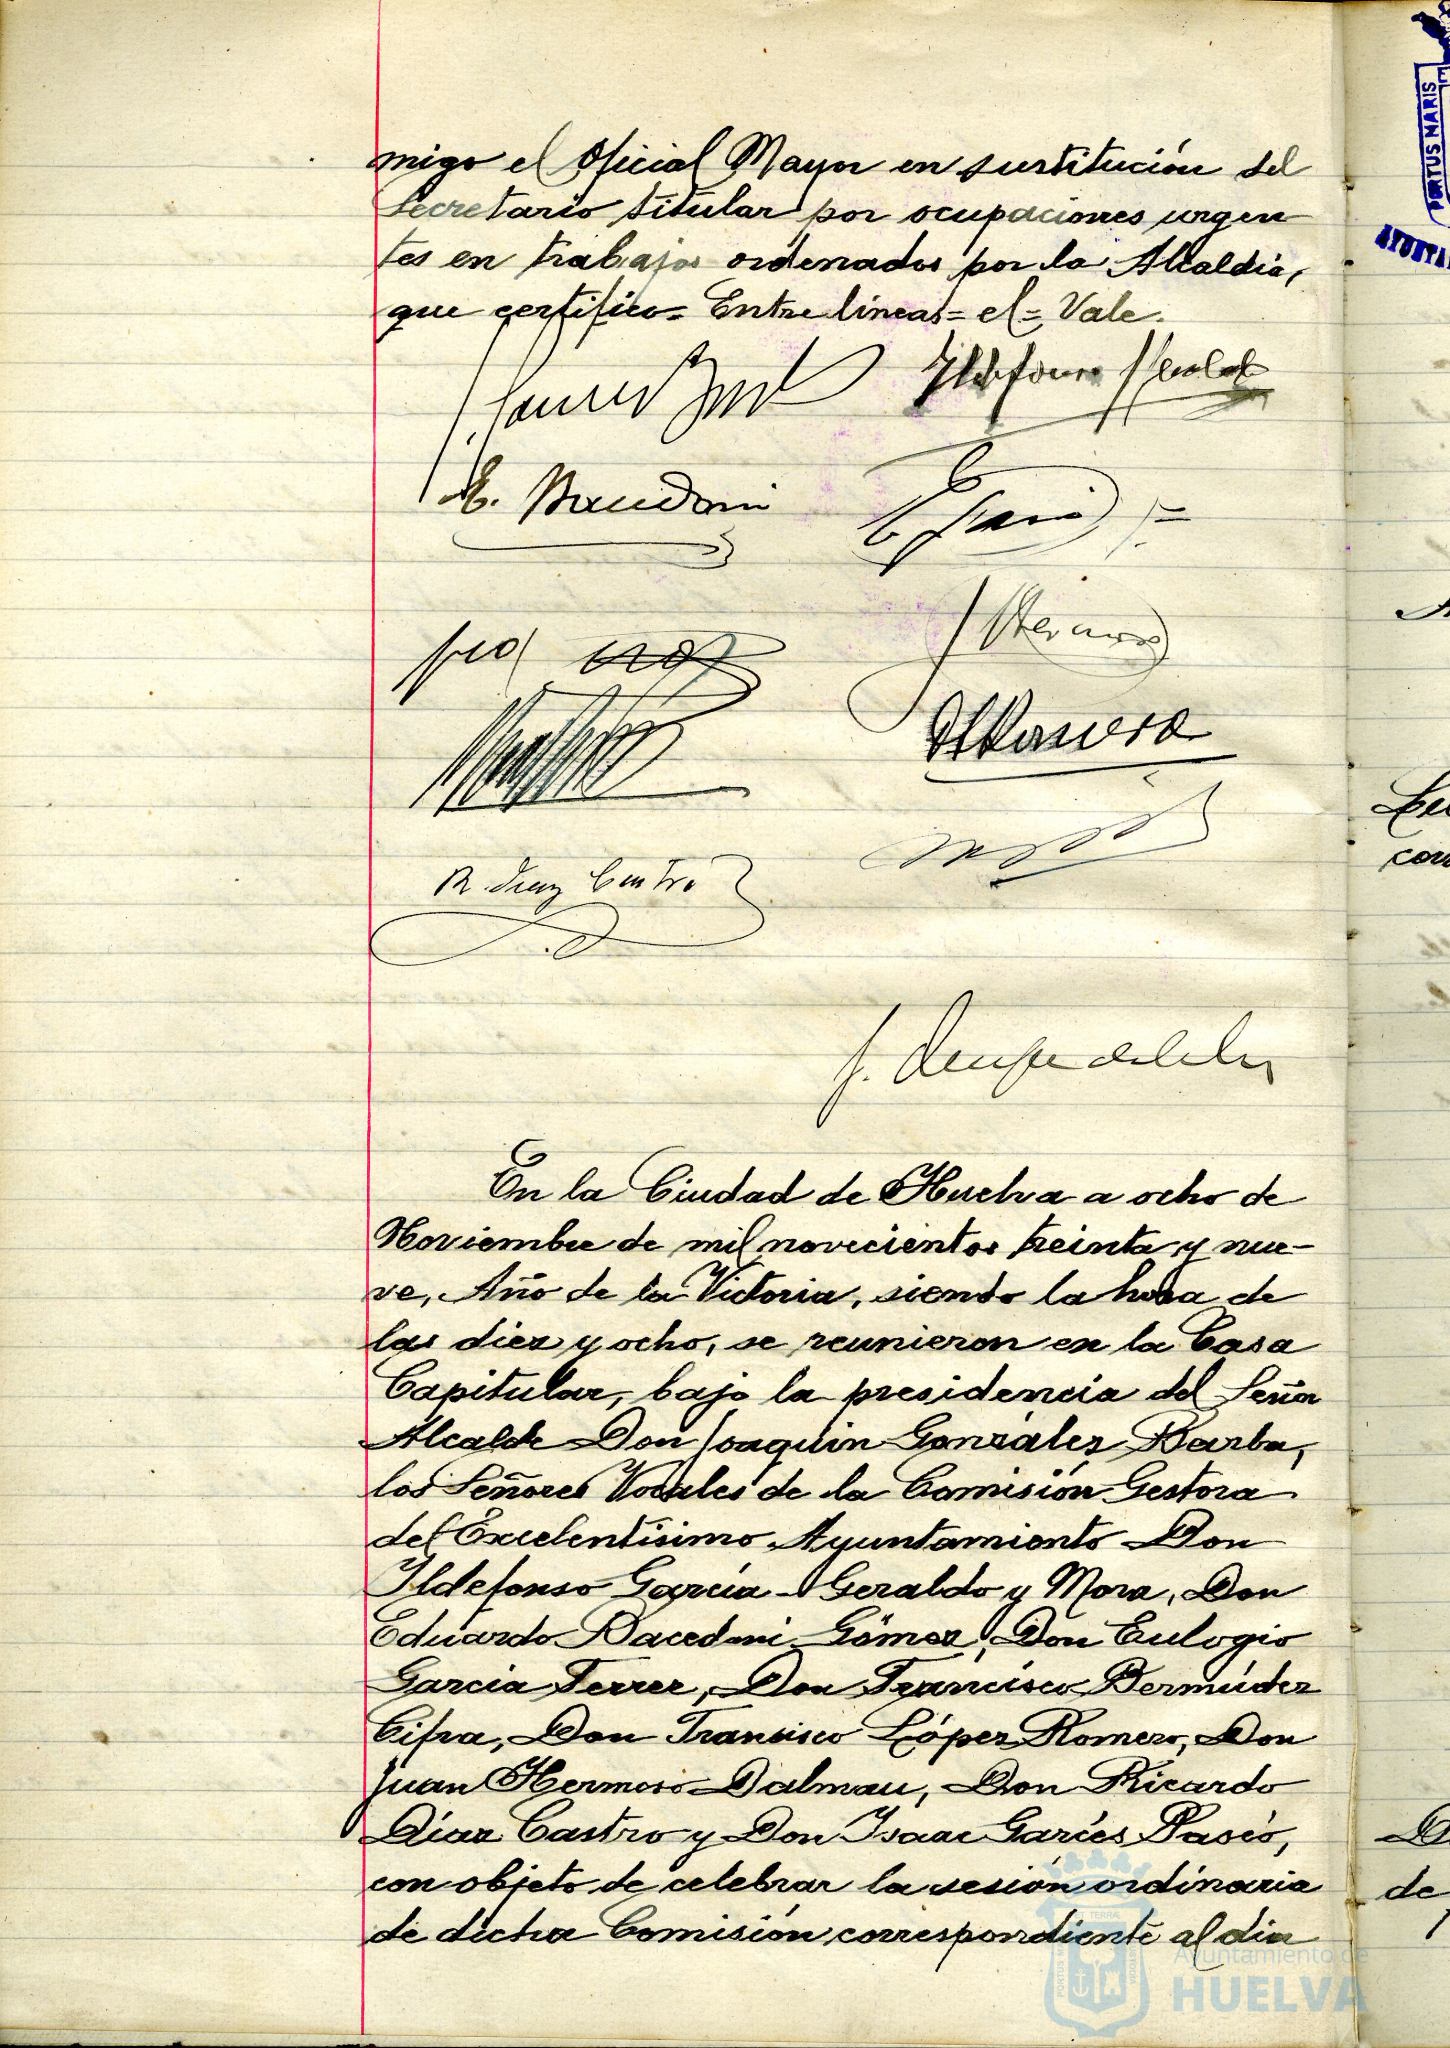 migo el Oficial Mayor en sustitución del
Secretario titular por ocupaciones urgen
tes en trabajos ordenados por la Alcaldia,
que certifico= Entre lineas= el= Vale.
Ildefonso
E. Bacedoni
R. Diaz Castro
En la Ciudad de Huelva a ocho de
Noviembre de mil novecientos treinta y nue-
ve, Año de la Victoria, siendo la hora de
las diez y ocho, se reunieron en la Casa
Capitular, bajo la presidencia del Señor
Alcalde Don Joaquin González Barba,
los Señores Vocales de la Comisión Gestora
del Excelentísimo Ayuntamiento Don
Ildefonso García-Geraldo y Mora, Don
Eduardo Bacedoni Gómez, Don Eulogio
Garcia Ferrer, Don Francisco Bermúdez
Cifra, Don Francisco López Romero, Don
Juan Hermoso Dalmau, Don Ricardo
Díaz Castro y Don Isaac Garcés Pasió,
con objeto de celebrar la sesión ordinaria
de dicha Comisión correspondiente al dia
PORTUS MARIS
Ayuntamiento de
HUELVA